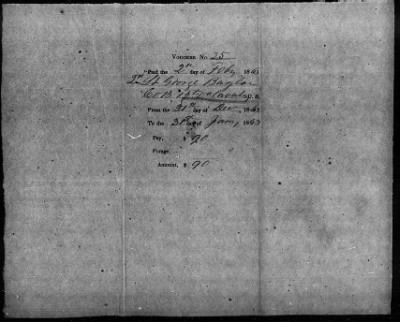 VOUCHER No. 25
Paid the 2nd day of Feby 1863
2nd Lt. George Baylor
Co. B Cavalry
From the 31st day of Dec 186
To the 31st of Jany 1863
Pay, $ 90
Forage, " "
Amount, $ 90